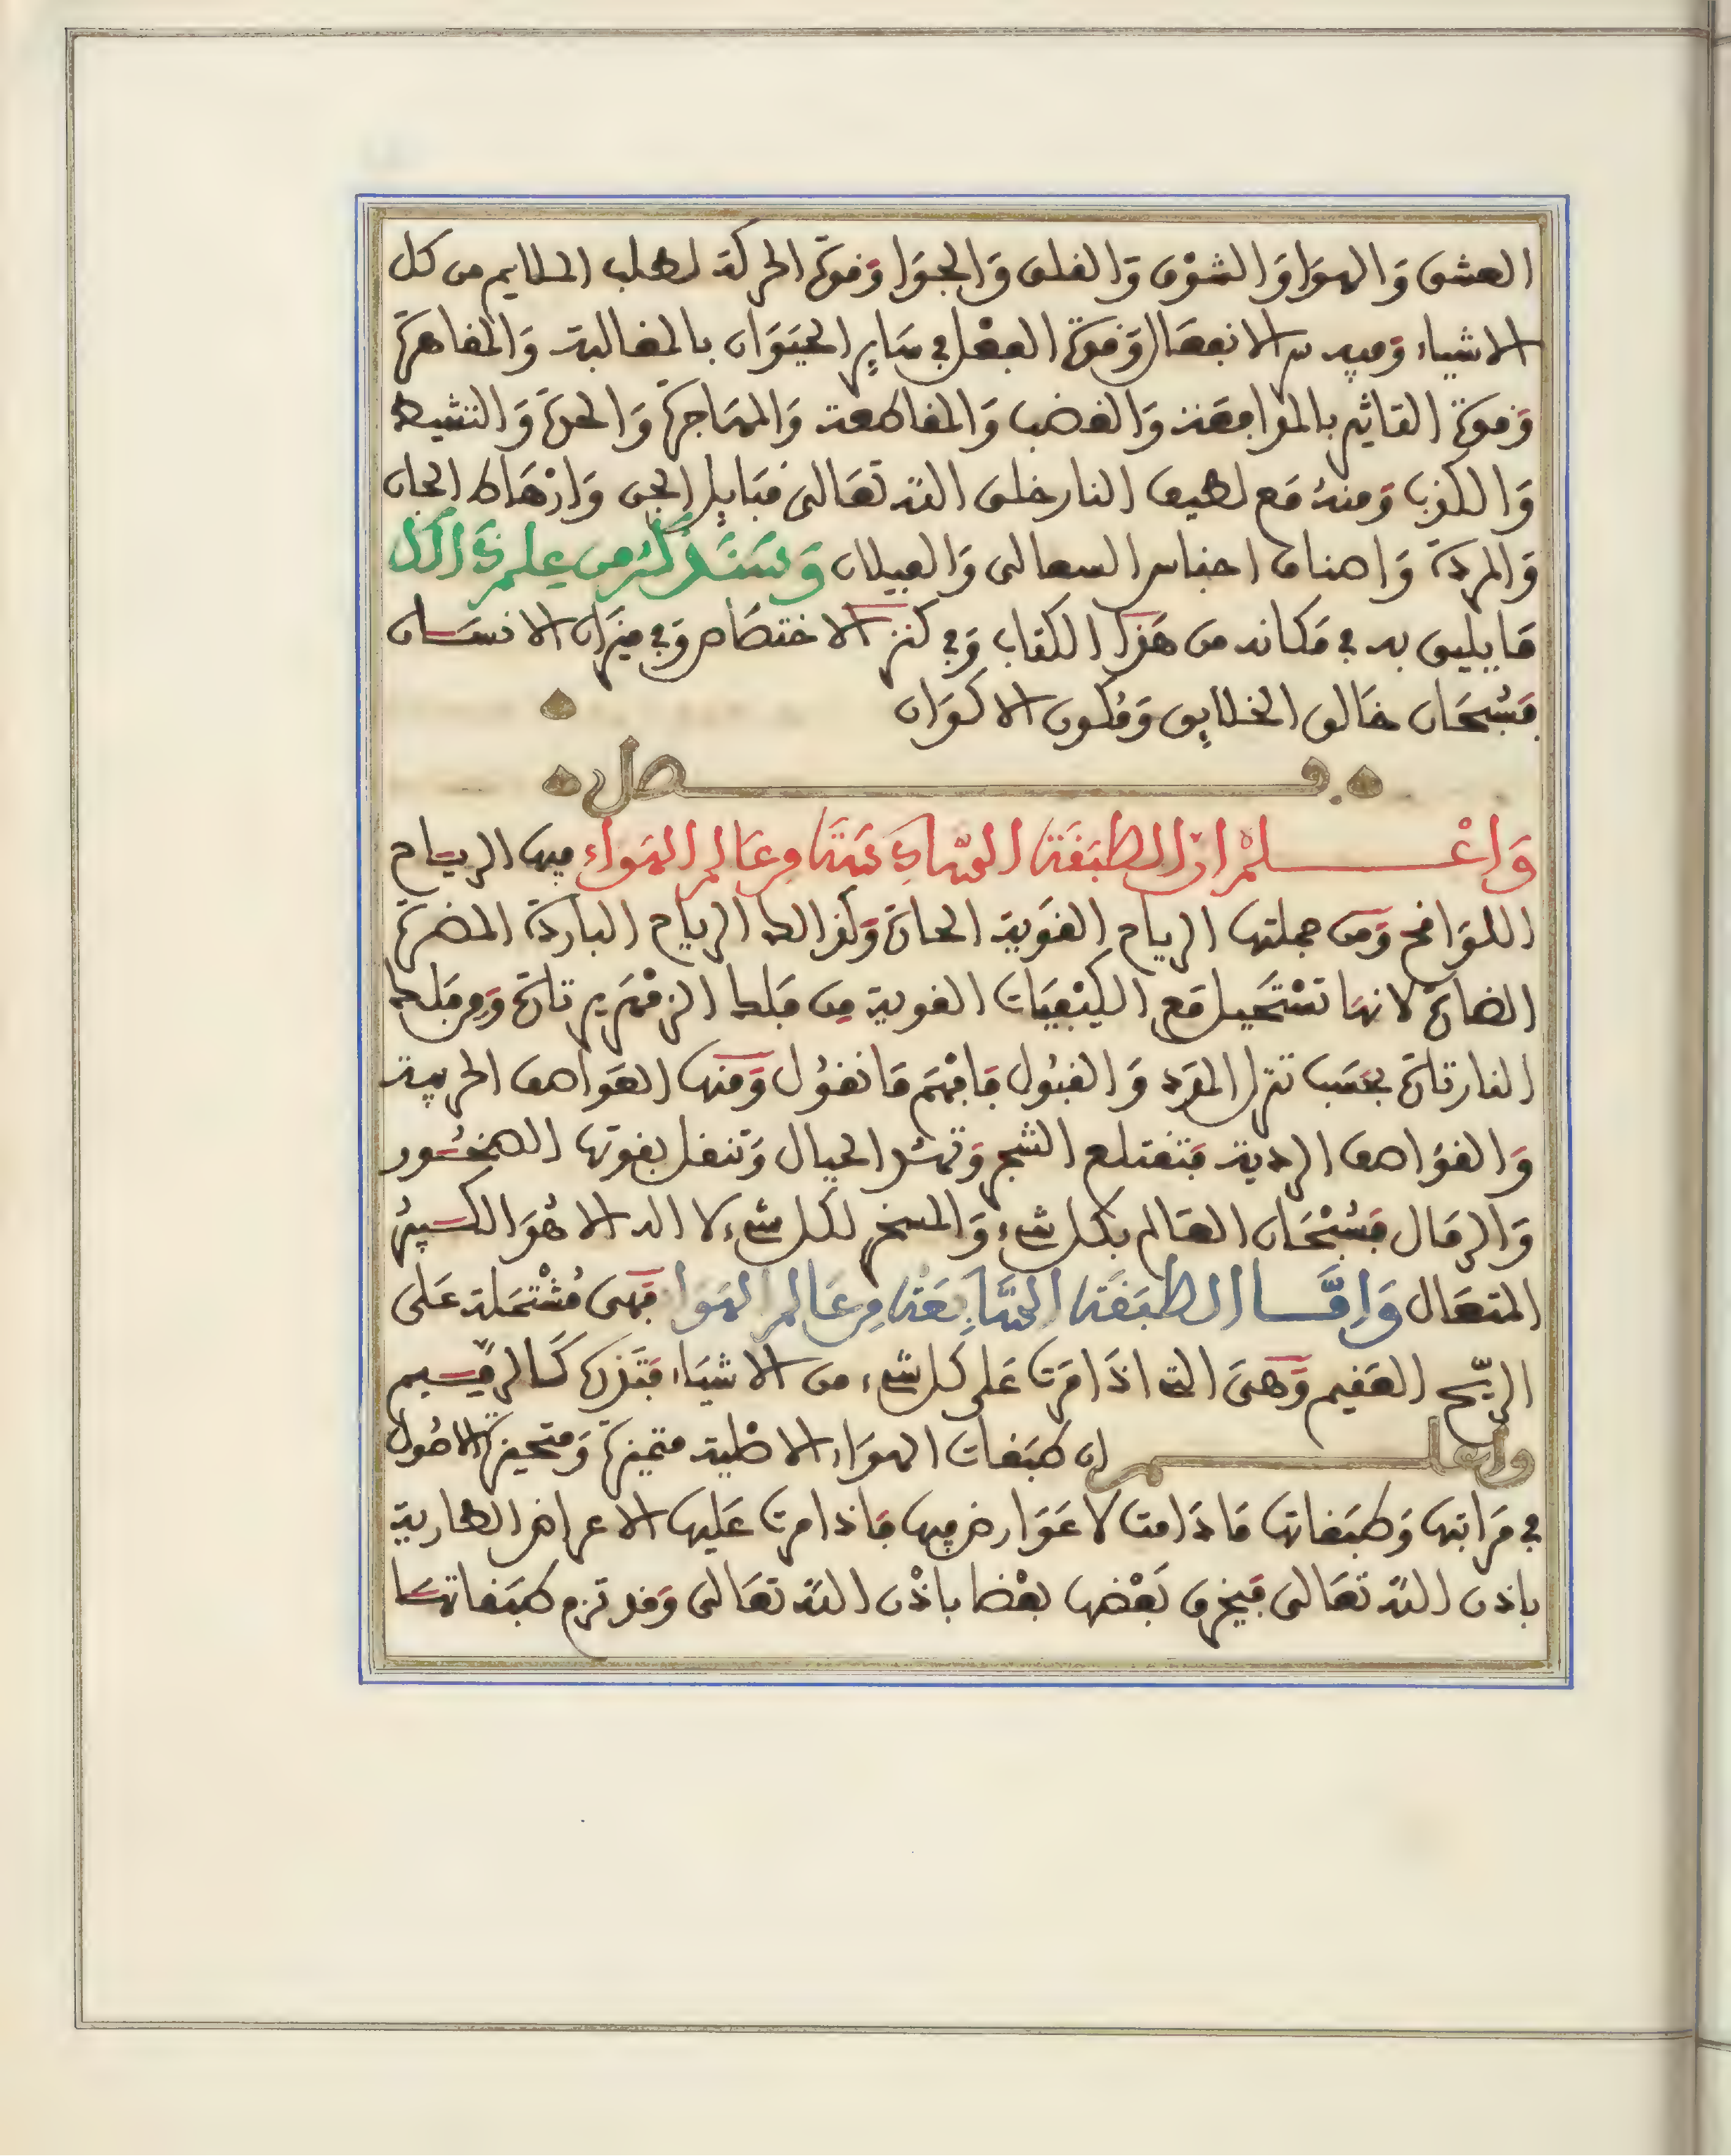 العشق وَالهوَا وَالشوْق وَالقلق وَالجوَا وَقوة الحركة لطلب الملايم من كل
الاشياء وَفيه سر الانفعَال وَقوة الفعْل في سَاير الحيَوَان بالمغالبة وَالمقاهرة
وَقوة التاثير بالمرَافعَة وَالغضب وَالمقاطعة وَالمهَاجرة وَالحدة وَالتنشيط
وَالكذب وَمنهُ مَع لطيف النار خلق الله تعَالى قبَايل الجن وَارْهَاط الجان
وَالمردة وَاصناف اجناس السعالى وَالغيلان وَسَنَذكرُ من علم ذَلك
مَا يليق به في مَكانه من هَذا الكتاب وَفي كنز الاختصَاص وَفي ميزان الانسَان
فسُبحَان خَالق الخلايق وَمُكون الاكوَان
فصل
وَاعْلمْ ان الطبَقَة السَّادِسَة مِن عَالم الهَواء فيها الريَاح
اللوَاقح وَمن جملتها الرياح القوَية الحارة وَكذالك الرياح الباردة المضرة
الضارة لانهَا تسْتَحيل مَع الكيْفيَات القوية مِن فلك الزمْهَرير تارة وَمِن فلك
النار تارة بحَسَب تنزل المَدد وَالقبُول فَافهَم مَا نقوُل وَمنها العَوَاصف الحربية
وَالقوَاصف الردية فتقتلع الشجر وَتهدُ الجبال وَتنقل بقوتها الصخُور
وَالرمَال فسُبْحَان العَالم بكل شيء وَالمسخر لكل شيء لا اله الا هُوَ الكبيرُ
المتعَال وَامَّا الطبَقَة السَّابِعَة مِن عَالم الهَوا فهَى مُشْتمَلة عَلى
الريّح العَقيم وَهىَ التي اذَا مَرت عَلى كل شيء من الاشيَاء فتَذره كَالرمِيم
واعلم ان طبَقات الهوَاء الاصْلية متميزة وَمتحيزة الاصُول
في مَرَاتبها وَطبَقاتها مَا دَامت لا عَوَارض فيها فاذا مرت عَليها الاعراض الطارية
باذن الله تعَالى فيخرق بَعْضها بعْضا باذْن الله تعَالى وَقد ترجم طبَقاتهَا